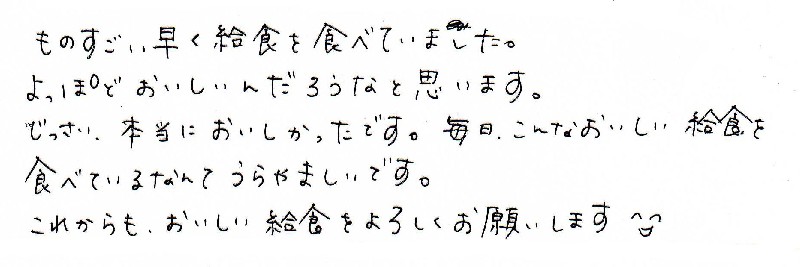 ものすごい早く給食を食べていました。
よっぽどおいしいんだろうなと思います。
じっさい、本当においしかったです。毎日、こんなおいしい給食を
食べているなんてうらやましいです。
これからも、おいしい給食をよろしくお願いします